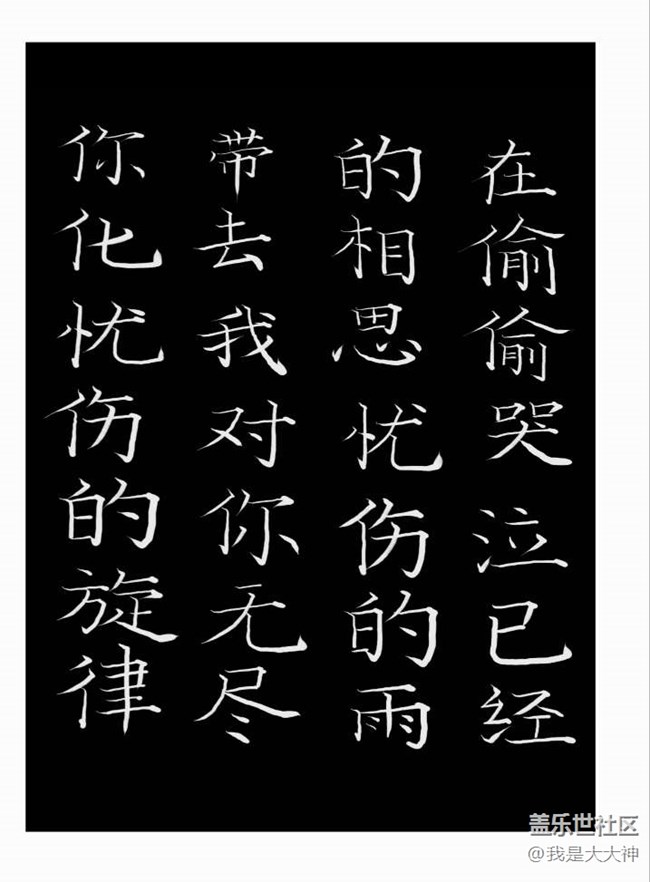 你化忧伤的旋律
带去我对你无尽
的相思忧伤的雨
在偷偷哭泣已经
盖乐世社区
@我是大大神